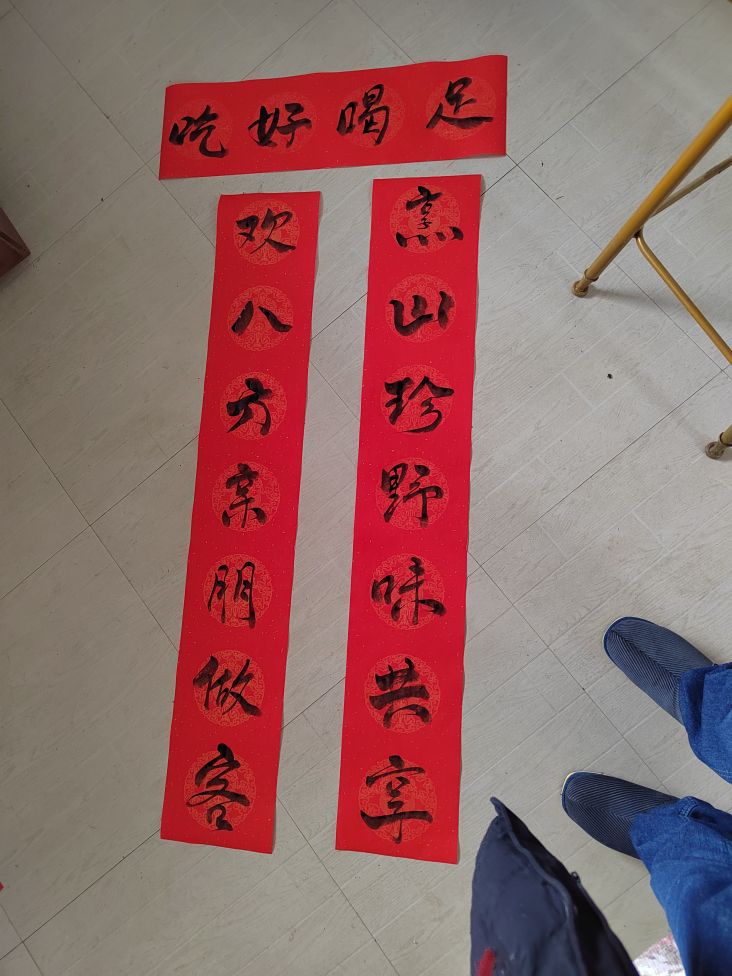 吃好喝足
烹山珍野味共享
欢八方亲朋做客